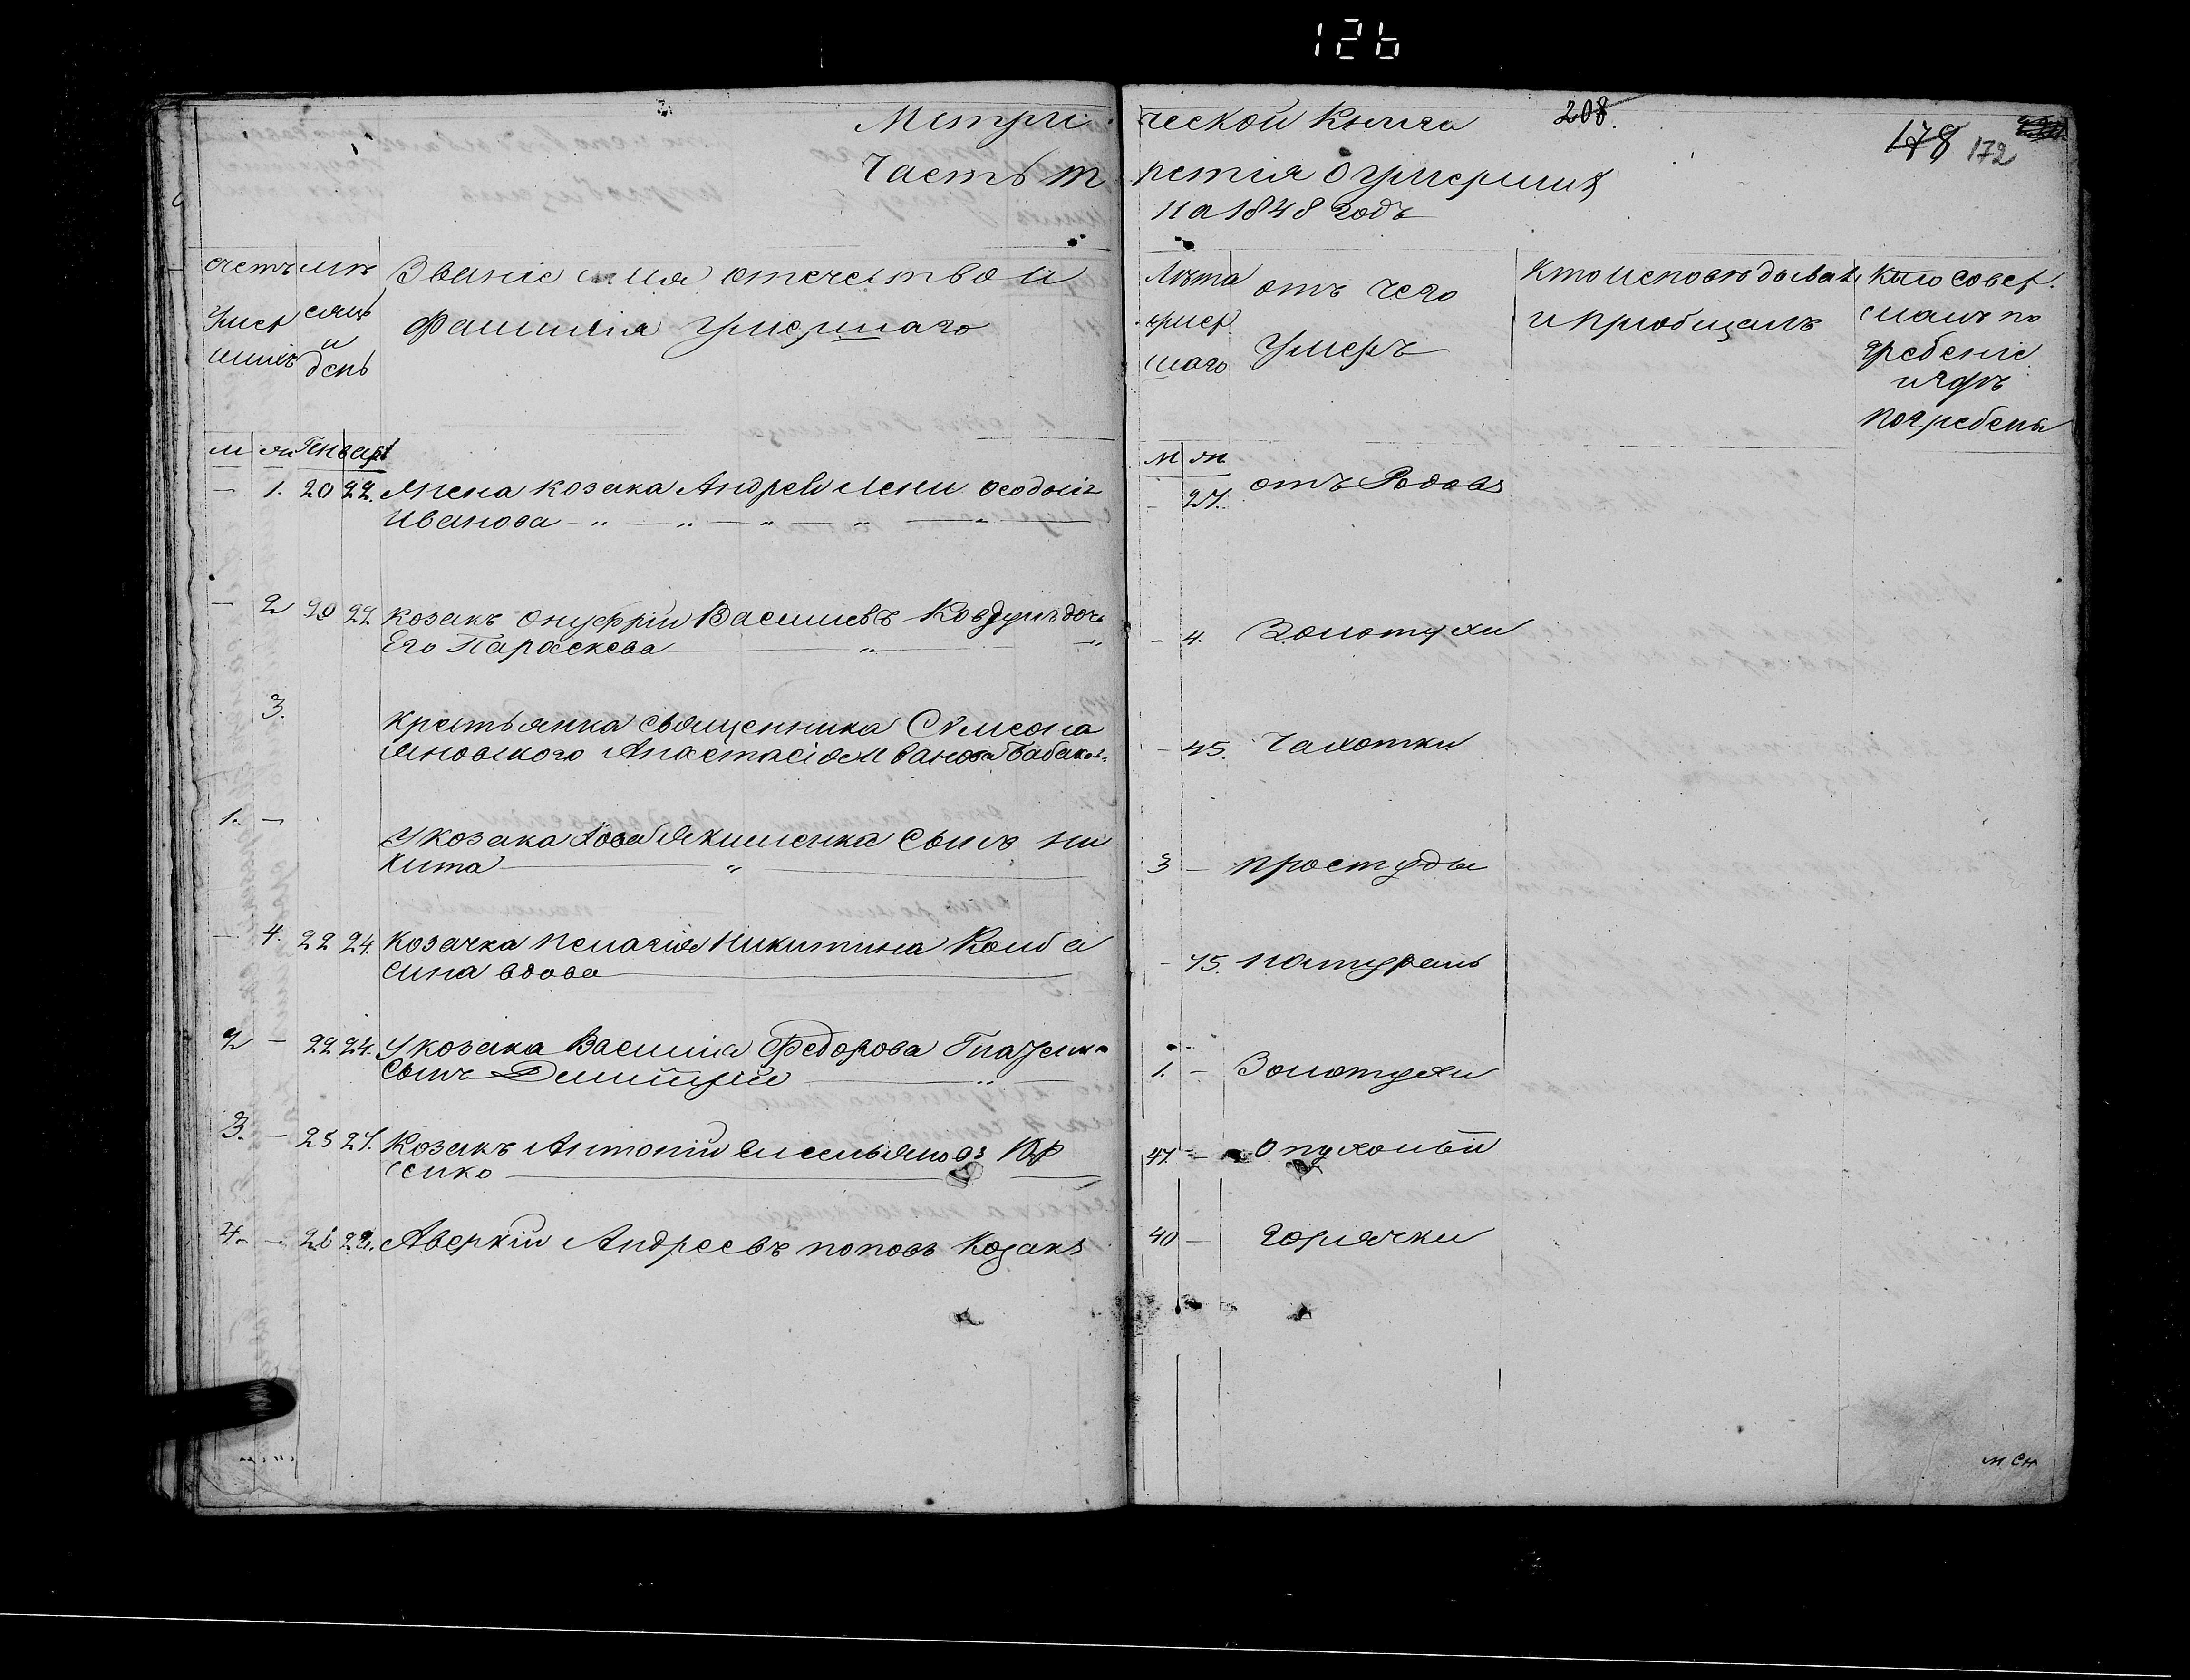 126
Метри ческой Книги 208.
178 172
Часть т ретiя о умершихъ
на 1848 годъ
счетъ умер шихъ
мѣ сяцъ и день
Званiе имя отечество и
Фамилiя умершаго
Лѣта умер шаго
отъ чего
умеръ
Кто исповѣдывалъ
и прiобщалъ
Кто совер
шалъ по
гребенiе
и гдѣ
погребены
м ж Генваря
м ж
- 1. 20 22. Жена козака Андрея Лени Феодосiя - 27. отъ Родовъ
Иванова
- 2 20 22 Козакъ Онуфрiй Василiевъ Ковдунъ дочь
Его Параскева - 4. Золотухи
3. Крестьянка священника Симеона
Яновского Анастасiя Иванова Бабако - 45. Чахотки
1. - У козака Якименка сынъ Ни
кита 3 - простуды
- 4. 22 24. Козачка Пелагiя Никитина Колба
сина вдова - 75. натураль
2 - 22 24. У козака Василiя Федорова
сынъ Димитрiй 1. - Золотухи
3. - 25 27. Козакъ Антонiй Емельяновъ
сенко 47 - Опухольи
4. - 26 28. Аверкiй Андреевъ поповъ Козакъ 40 - горячки
м. сн